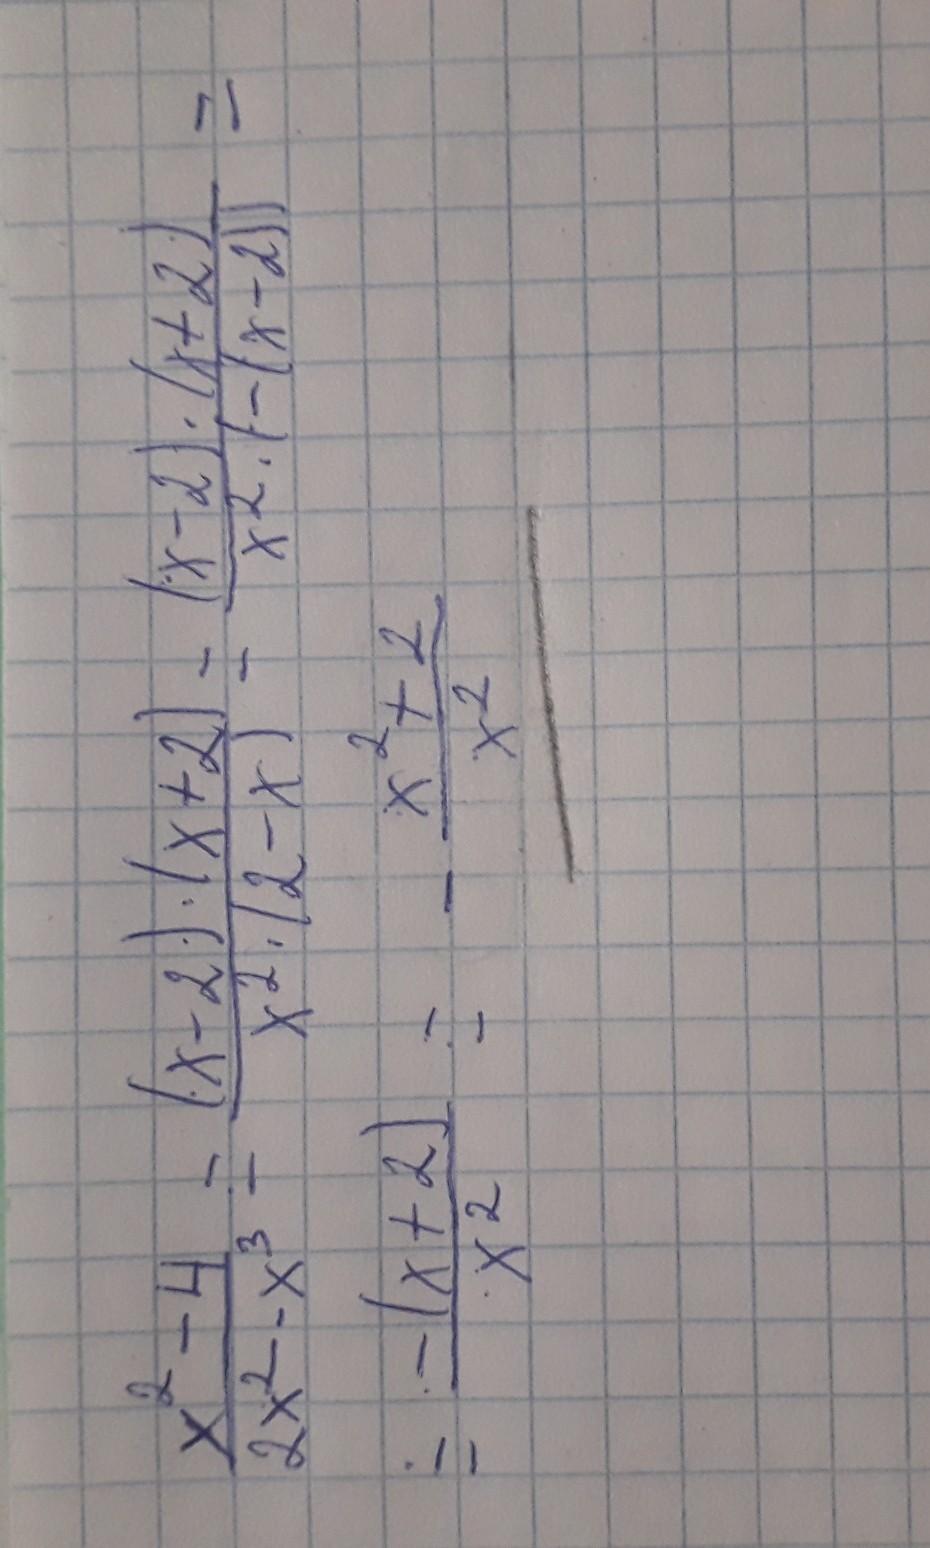 \frac{x^2-4}{2x^2-x^3} = \frac{(x-2)\cdot(x+2)}{x^2\cdot(2-x)} = \frac{(x-2)\cdot(x+2)}{x^2\cdot(-(x-2))} =
= \frac{-(x+2)}{x^2} = -\frac{x^2+2}{x^2}